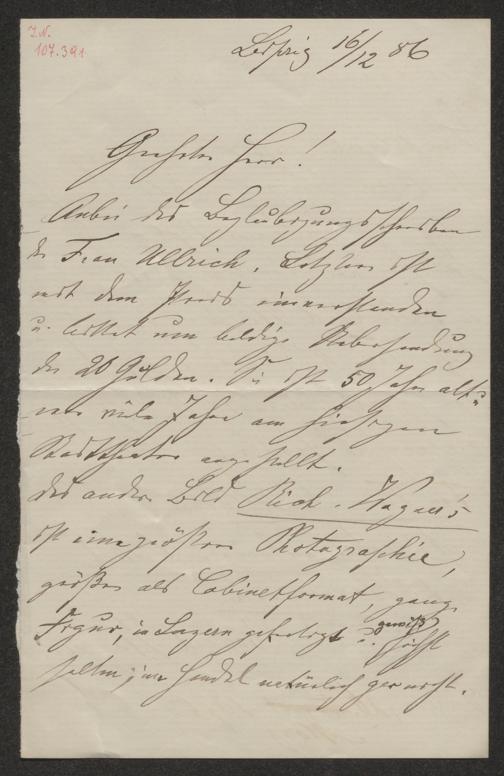 I.N.
107.391
Leipzig 16/12 86
Geehrter Herr!
Anbei das Beglaubigungsschreiben
der Frau Ullrich. Letztere ist
mit dem Preis einverstanden
u. bittet um baldige Uebersendung
der 20 Gulden. Sie ist 50 Jahre alt u.
war viele Jahre am hiesigen
Stadttheater angestellt.
Das andere Bild Rich. Wagner's
ist eine größere Photographie,
größer als Cabinetformat, ganze
Figur, in Luzern gefertigt u. gewiß höchst
selten; im Handel natürlich gar nicht.